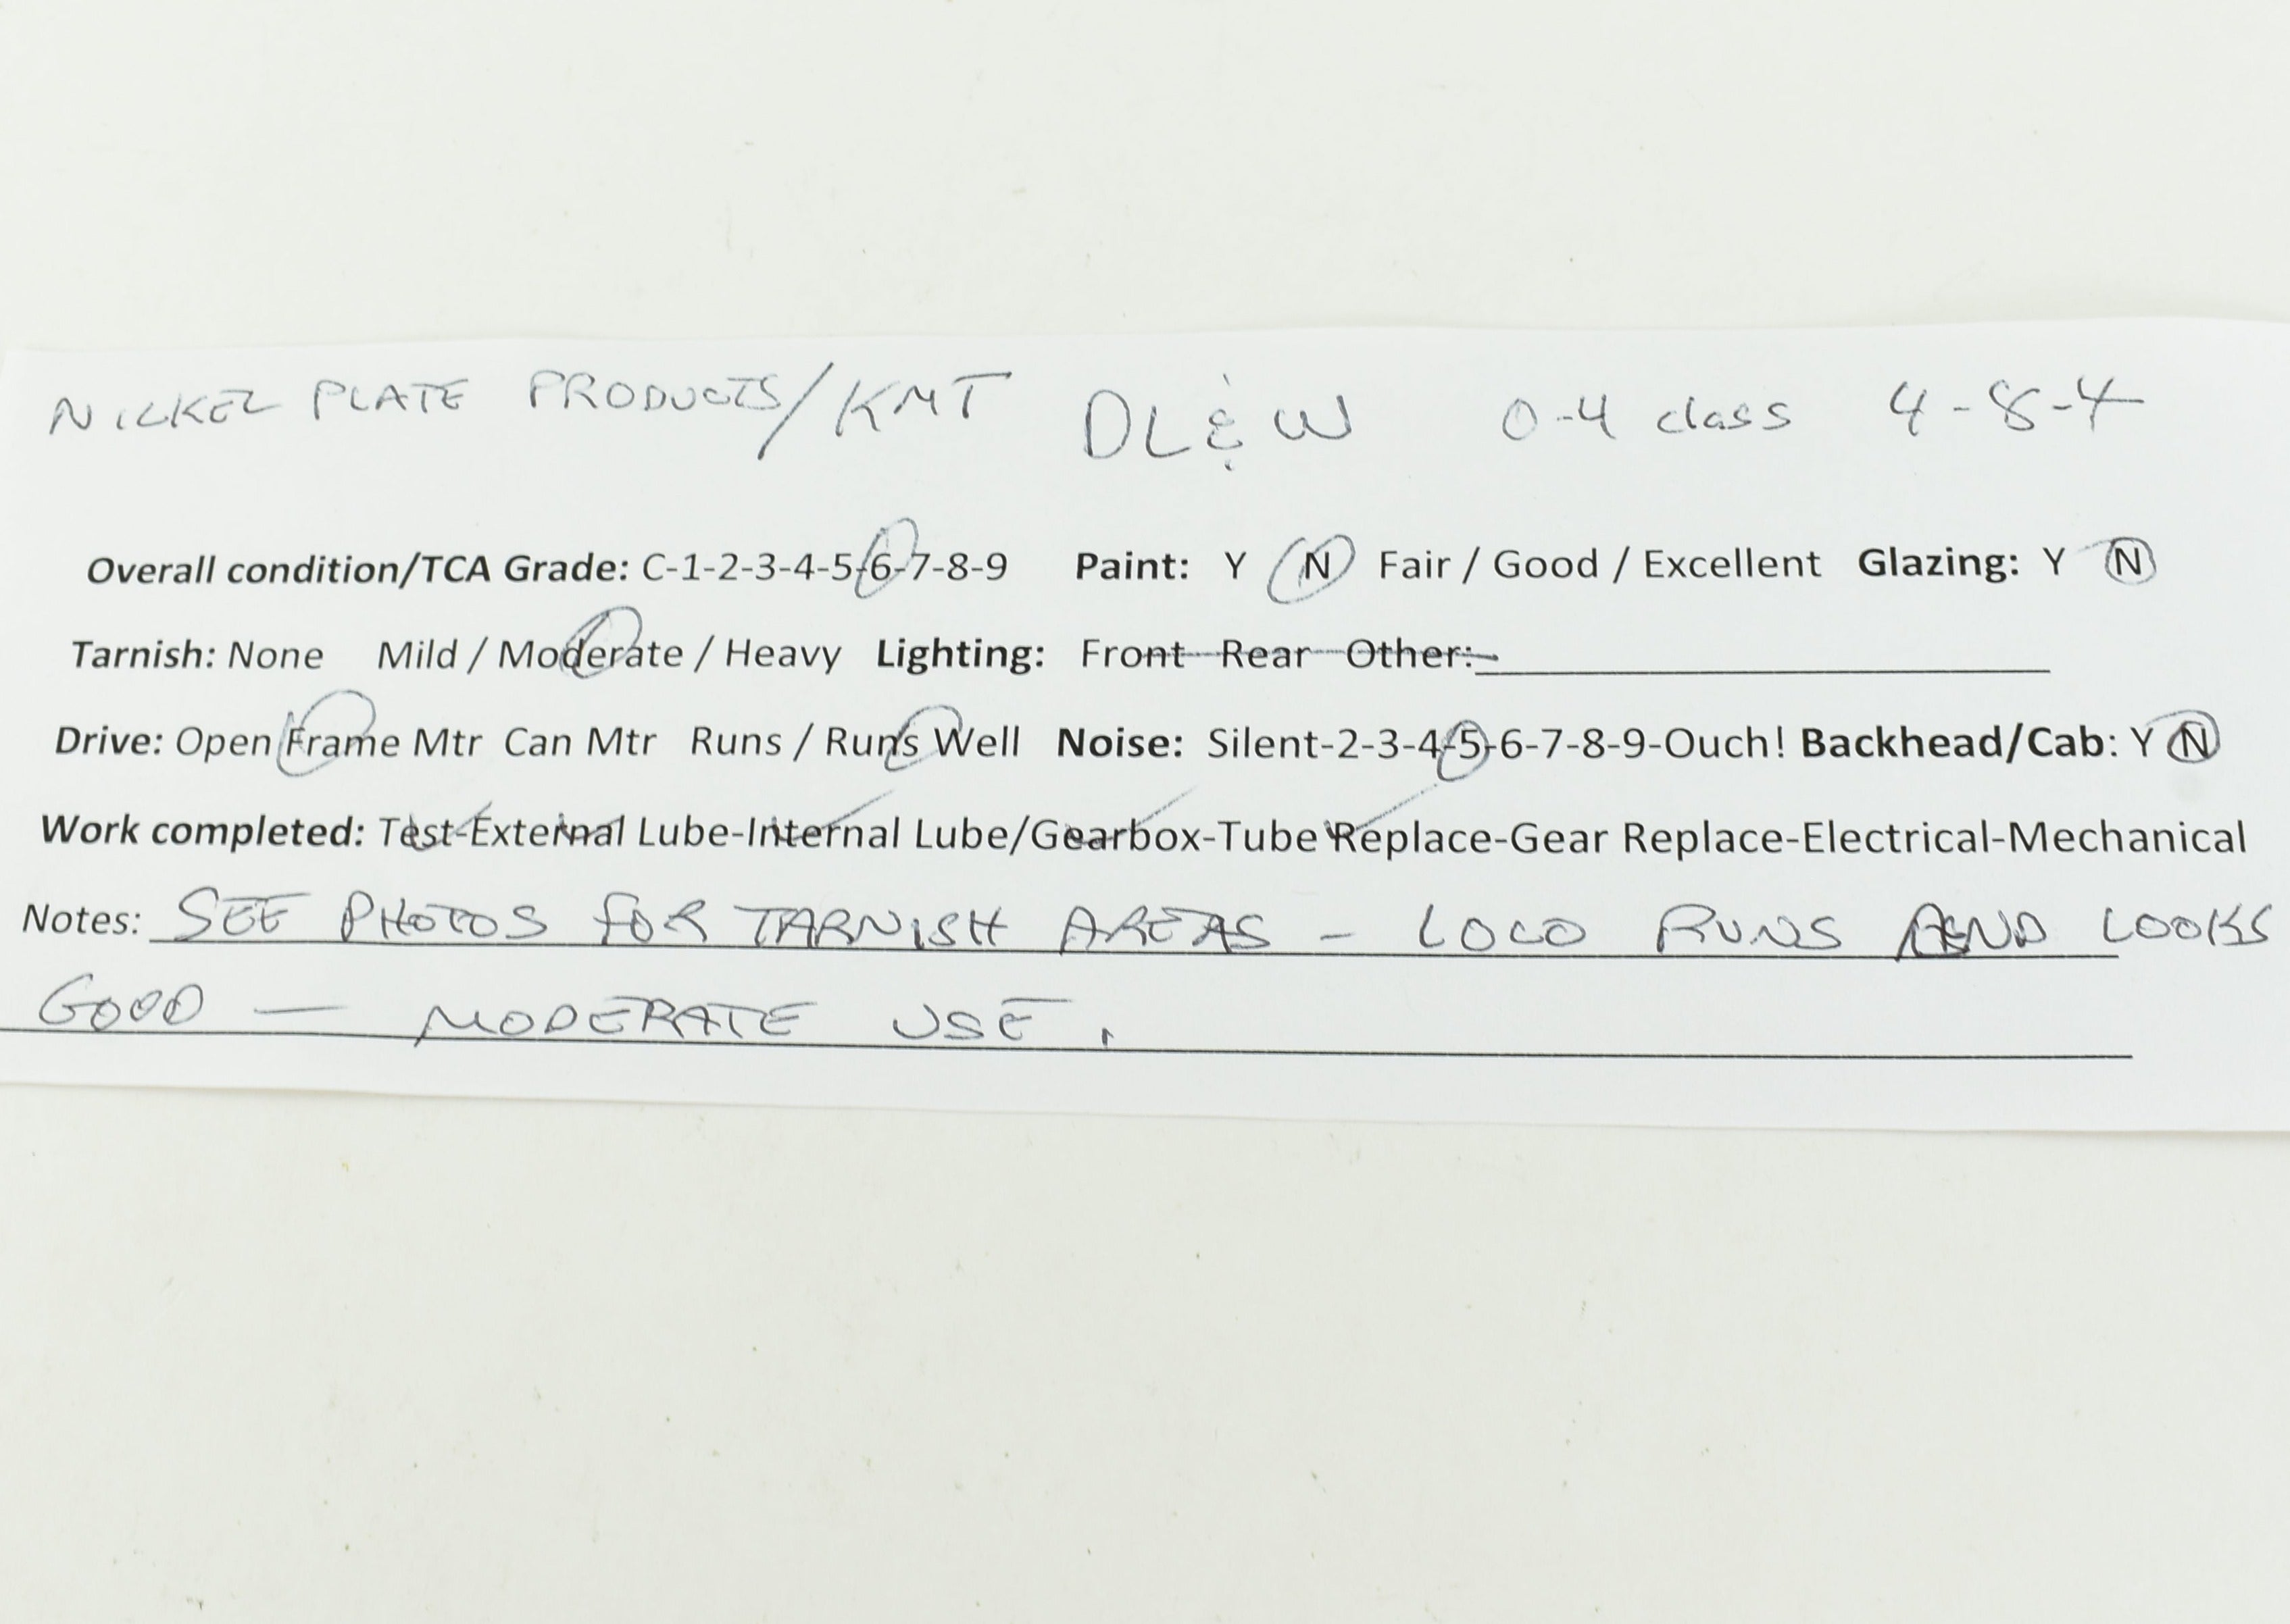 NICKEL PLATE PRODUCTS/KMT DL&W O-4 class 4-8-4
Overall condition/TCA Grade: C-1-2-3-4-5-6-7-8-9 Paint: Y N Fair / Good / Excellent Glazing: Y N
Tarnish: None Mild / Moderate / Heavy Lighting: Front Rear Other:
Drive: Open Frame Mtr Can Mtr Runs / Runs Well Noise: Silent-2-3-4-5-6-7-8-9-Ouch! Backhead/Cab: Y N
Work completed: Test-External Lube-Internal Lube/Gearbox-Tube Replace-Gear Replace-Electrical-Mechanical
Notes: SEE PHOTOS FOR TARNISH AREAS - LOCO RUNS AND LOOKS
GOOD — MODERATE USE.